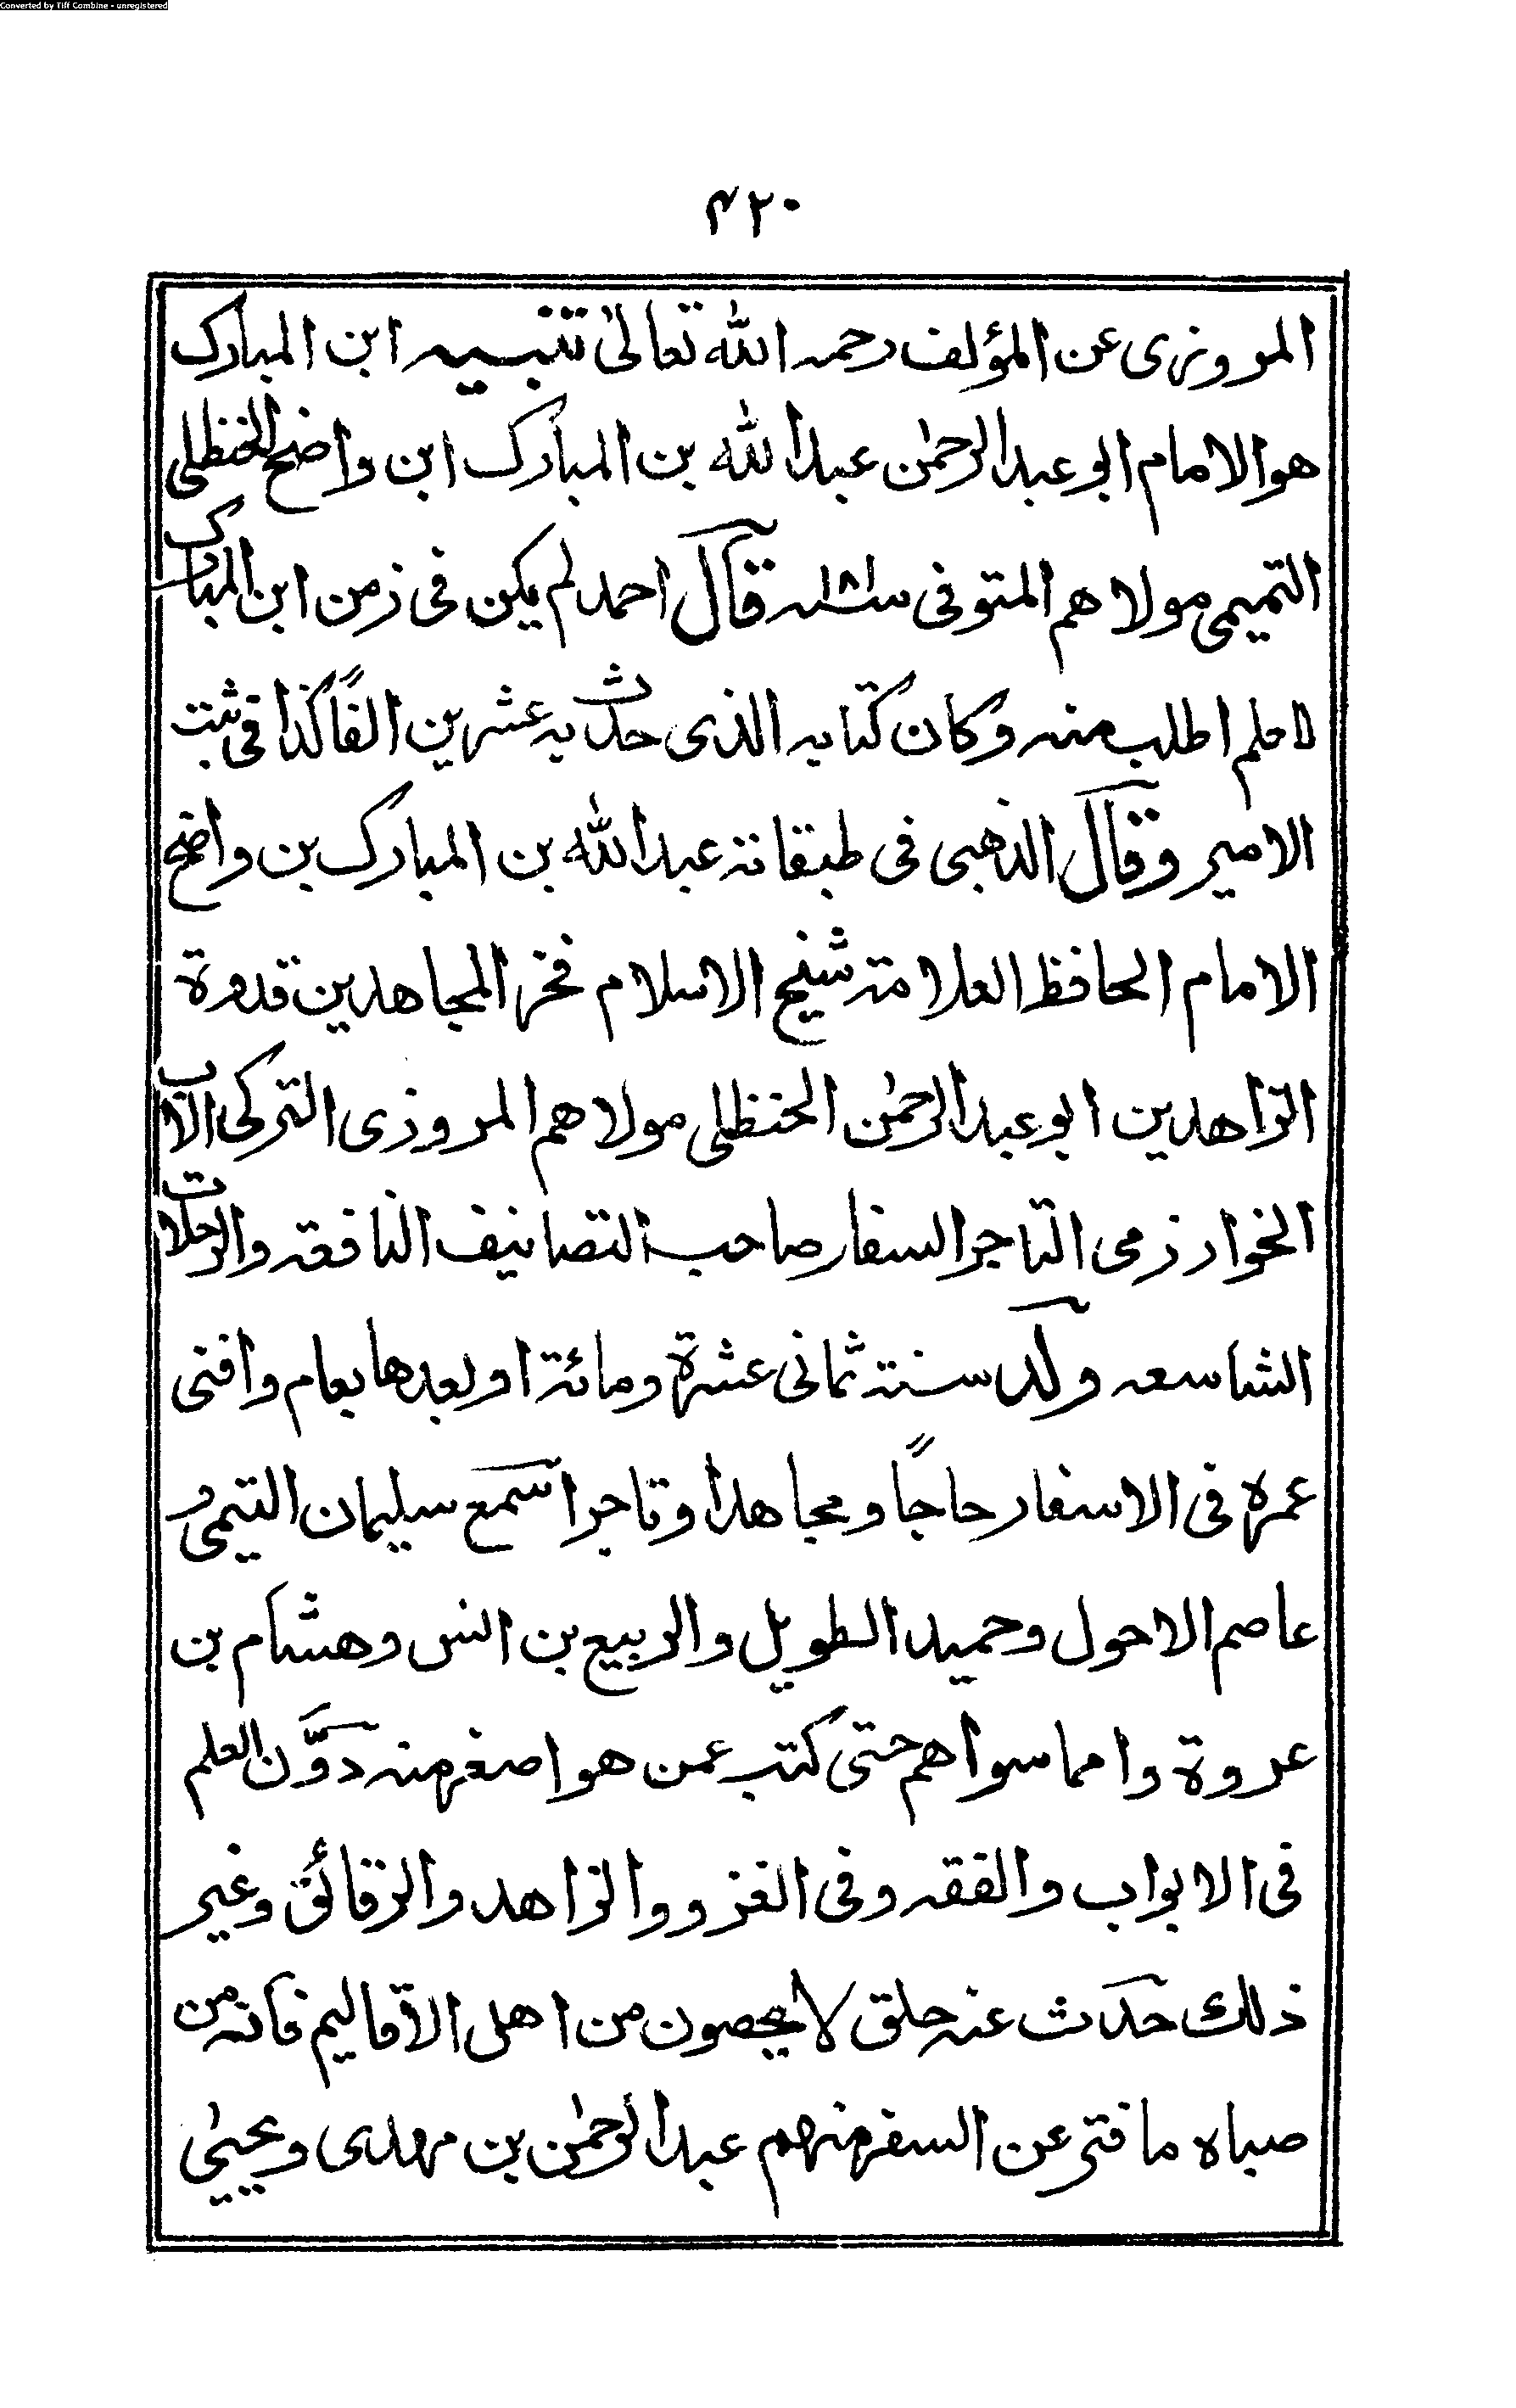 Converted by Tiff Combine - unregistered
۴۲۰
المروزی عن المؤلف رحمه الله تعالیٰ تنبیه ابن المبارک
هو الامام ابو عبد الرحمٰن عبد الله بن المبارک ابن واضح الحنظلی
التمیمی مولاهم المتوفی سنه ۱۸۱ قال احمد لم یکن فی زمن ابن المبارک
لاعلم اطلب منه وکان کتابه الذی حدث به عشرین الفاً کذا فی ثبت
الامیر وقال الذهبی فی طبقاته عبد الله بن المبارک بن واضح
الامام الحافظ العلامة شیخ الاسلام فخر المجاهدین قدوة
الزاهدین ابو عبد الرحمٰن الحنظلی مولاهم المروزی الترکی الاب
الخوارزمی التاجر السفار صاحب التصانیف النافعه والرحلات
الشاسعه ولد سنة ثمانی عشرة ومائة او بعدها بعام وافنی
عمره فی الاسفار حاجاً ومجاهدا وتاجرا سمع سلیمان التیمی و
عاصم الاحول وحمید الطویل والربیع بن انس وهشام بن
عروة وامما سواهم حتی کتب عمن هو اصغر منه دوَّن العلم
فی الابواب والفقه وفی الغزو والزاهد والرقائق وغیر
ذلک حدث عنه خلق لا یحصون من اهل الاقالیم فانه من
صباه ما فتر عن السفر منهم عبد الرحمٰن بن مهدی ویحییٰ